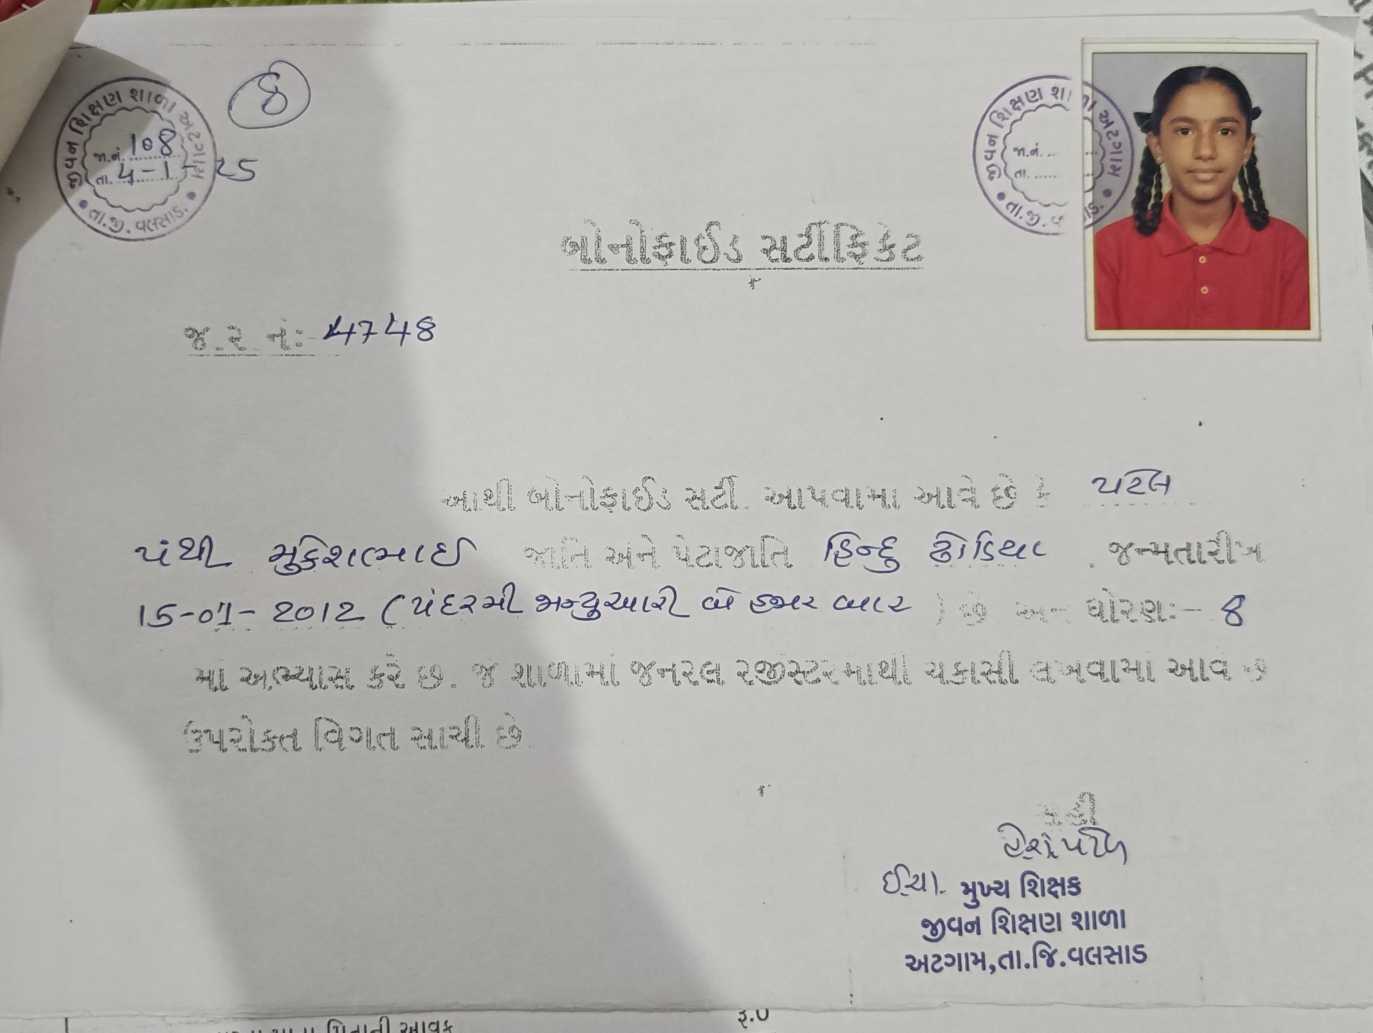 જીવન શિક્ષણ શાળા અટગામ
જા.નં. 108
તા. 4-1-25
તા.જી. વલસાડ.
8
જીવન શિક્ષણ શાળા અટગામ
જા.નં. ...
તા. ......
તા.જી. વ
બોનોફાઈડ સર્ટીફિકેટ
જ.ર નં: 4748
આથી બોનોફાઈડ સર્ટી. આપવામા આવે છે કે પટેલ
પંથી મુકેશભાઈ જાતિ અને પેટાજાતિ હિન્દુ ઢોડિયા . જન્મતારીખ
15-01-2012 (પંદરમી જાન્યુઆરી બે હજાર બાર ) છે અને ધોરણ:- 8
માં અભ્યાસ કરે છે. જે શાળામાં જનરલ રજીસ્ટરમાથી ચકાસી લખવામા આવે છે
ઉપરોક્ત વિગત સાચી છે
ઈ.ચા. મુખ્ય શિક્ષક
જીવન શિક્ષણ શાળા
અટગામ,તા.જિ.વલસાડ
પિતાની આવક
રૂ.0